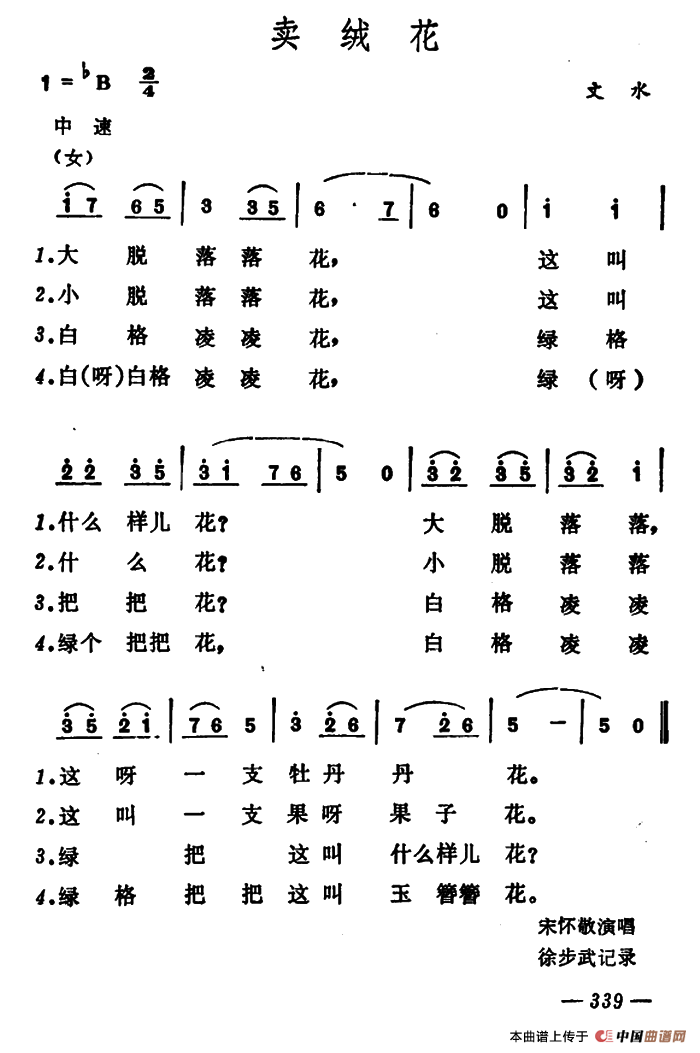 卖绒花
1=♭B 2/4
文水
中速
（女）
i7 65 | 3 35 | 6 · 7 | 6 0 | i i |
1.大脱落落花，这叫
2.小脱落落花，这叫
3.白格凌凌花，绿格
4.白(呀)白格凌凌花，绿(呀)
22 35 | 3i 76 | 5 0 | 32 35 | 32 i |
1.什么样儿花？大脱落落，
2.什么花？小脱落落
3.把把花？白格凌凌
4.绿个把把花，白格凌凌
35 2i | 76 5 | 3 26 | 7 26 | 5 — | 5 0 ‖
1.这呀一支牡丹丹花。
2.这叫一支果呀果子花。
3.绿把这叫什么样儿花？
4.绿格把把这叫玉簪簪花。
宋怀敬演唱
徐步武记录
— 339 —
本曲谱上传于 中国曲谱网